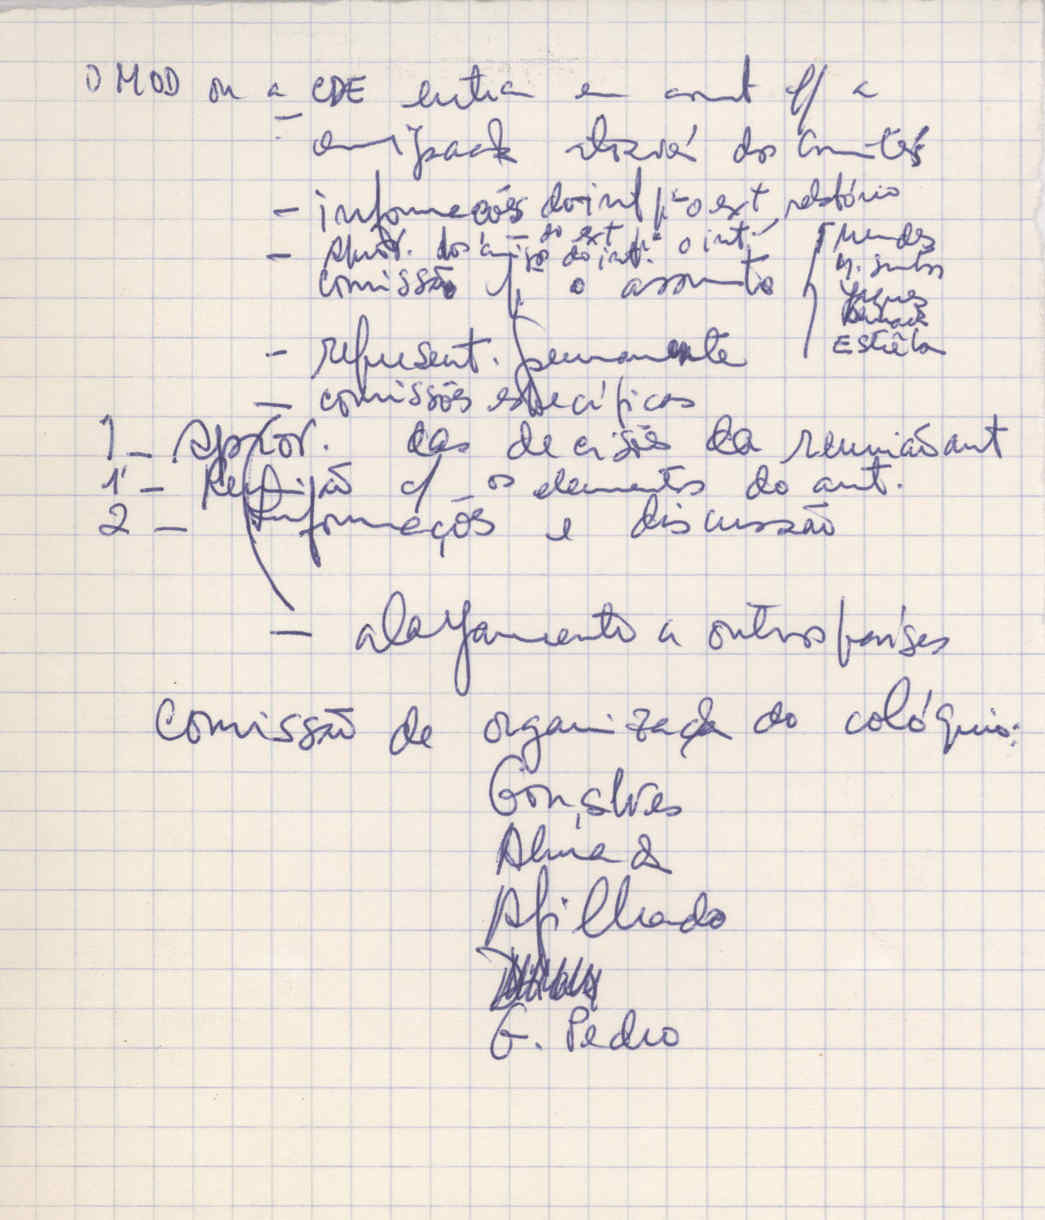 O MOD ou a CDE entra em cont c/ a
através dos Comités
- informações do int p.ª o ext relatório
- aprov. do ext o int.
comissão p/ o assunto
Mendes
Estrêla
- represent. permanente
- comissões específicas
1 - Aprov. das decisões da reunião ant
1' - Reunião c/ os elementos do ant.
2 - Informações e discussão
- alargamento a outros países
Comissão de organização do colóquio:
Gonçalves
Almeida
Afilhado
G. Pedro